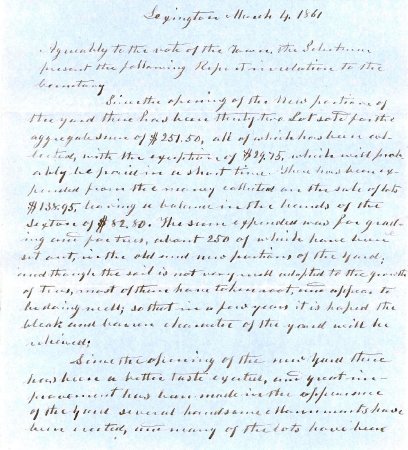 Lexington March 4, 1861
Agreeably to the vote of the Town, the Selectmen
present the following Report in relation to the
Cemetery
Since the opening of the New portion of
the Yard there has been thirty two Lots sold for the
aggregate sum of $251.50, all of which has been col-
lected, with the exception of $29.75, which will prob-
ably be paid in a short time. There has been ex-
pended from the money collected on the sale of lots
$138.95, leaving a balance in the hands of the
Sexton of $82.80. The sum expended was for grad-
ing and for trees, about 250 of which have been
set out, in the old and new portions of the Yard;
and though the soil is not very well adapted to the growth
of trees, most of them have taken root and appear to
be doing well; so that in a few years it is hoped the
bleak and barren character of the yard will be
relieved.
Since the opening of the new Yard there
has been a better taste exerted, and great im-
provement has been made in the appearance
of the Yard several handsome Monuments have
been erected, and many of the lots have been